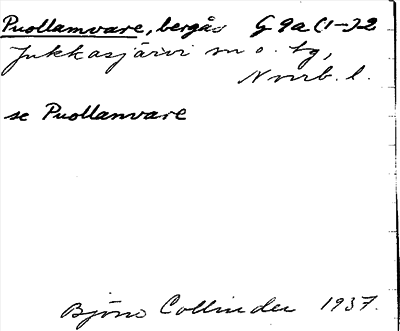 Puollamvare, bergås G 9a (1-)2
Jukkasjärvi sn o. tg,
Norrb. l.
se Puollanvare
Björn Collinder 1937.